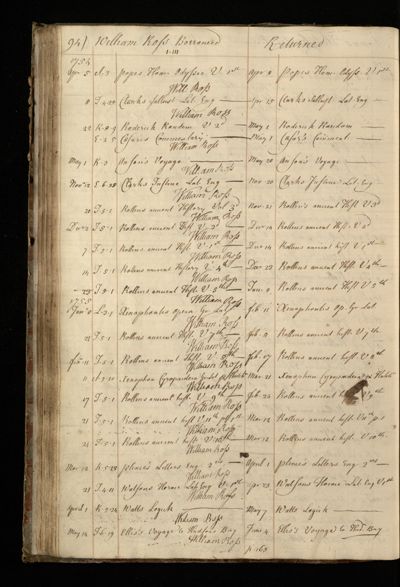 94) William Ross Borrowed Returned
1754
Apr 5 Popes Hom. Odyssey V 1st Apr 8 Popes Hom. Odyss. V 1st
Will Ross
8 Clarks Sallust Lat. Eng Apr 15 Clarks Sallust Lat. Eng
William Ross
22 Roderick Random V 2d May 1 Roderick Random
Caesars Commentary May 1 Caesar's Comment.
William Ross
May 1 K. 2 Ansons Voyage May 20 Anson's Voyage
William Ross
Nov 12 Clarks Justine Lat. Eng Nov 20 Clarks Justine Lat. Eng
William Ross
20 I.5.1 Rollins ancient History Vol. 3 Nov 21 Rollin's ancient Hist. V 3d
William Ross
Dec 2 I.5.1 Rollins ancient Hist. V 2d Dec 14 Rollins ancient Hist. V 2d
William Ross
7 I.5.1 Rollins ancient Hist. V 1st Dec 14 Rollins ancient hist. V 1st
William Ross
14 I.5.1 Rolins ancient History V 4th Dec 23 Rollins ancient Hist. V 4th
William Ross
23 I.5.1 Rollins ancient Hist. V 5th Rollins ancient Hist V 5th
1755 William Ross
Xenophontis Opera Gr. Lat feb 11 Xenophontis Op. Gr. Lat
William Ross
22 I.5.1 Rollins ancient Hist. V 7th feb. Rollins ancient hist. V 7th
William Ross
feb 11 I.5.1 Rollins ancient Hist. V 8th feb 17 Rollins ancient hist. V 8th
William Ross
11 Xenophon Cyropaedia Mar 21 Xenophon Cyropaedia
William Ross
17 I.5.1 Rollins ancient hist. V 9th feb 22 Rollins ancient V 9th
William Ross
21 I.5.1 Rollins ancient hist. V Mar 12 Rollins ancient hist.
William Ross
24 I.5.1 Rollins ancient hist. V 10th Mar 12 Rollins ancient hist. V 10th
William Ross
Mar 12 K.5.28 Plinie's Letters Eng. 2nd April 1 plinie's Letters Eng 2nd
William Ross
21 Watsons Horace Lat. Eng V 1st Apr 23 Watsons Horace Lat Eng V 1st
William Ross
April 1 Watts Logick May 7 Watts Logick
William Ross
May 14 Ellis's Voyage to Hudsons Bay June 4 Ellis's Voyage to Hud. Bay
William Ross
p. 163